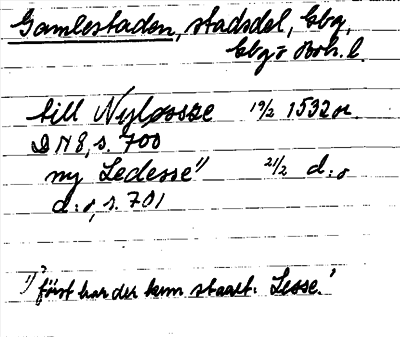 Gamlestaden, stadsdel, Gbg,
Gbg o Boh. l.
till Nyløssse 19/2 1532 or.
DN 8, s. 700
ny Ledesse¹⁾ 21/2 d:o
d:o, s. 701
¹⁾ "först har der kun staaet: Lesse."